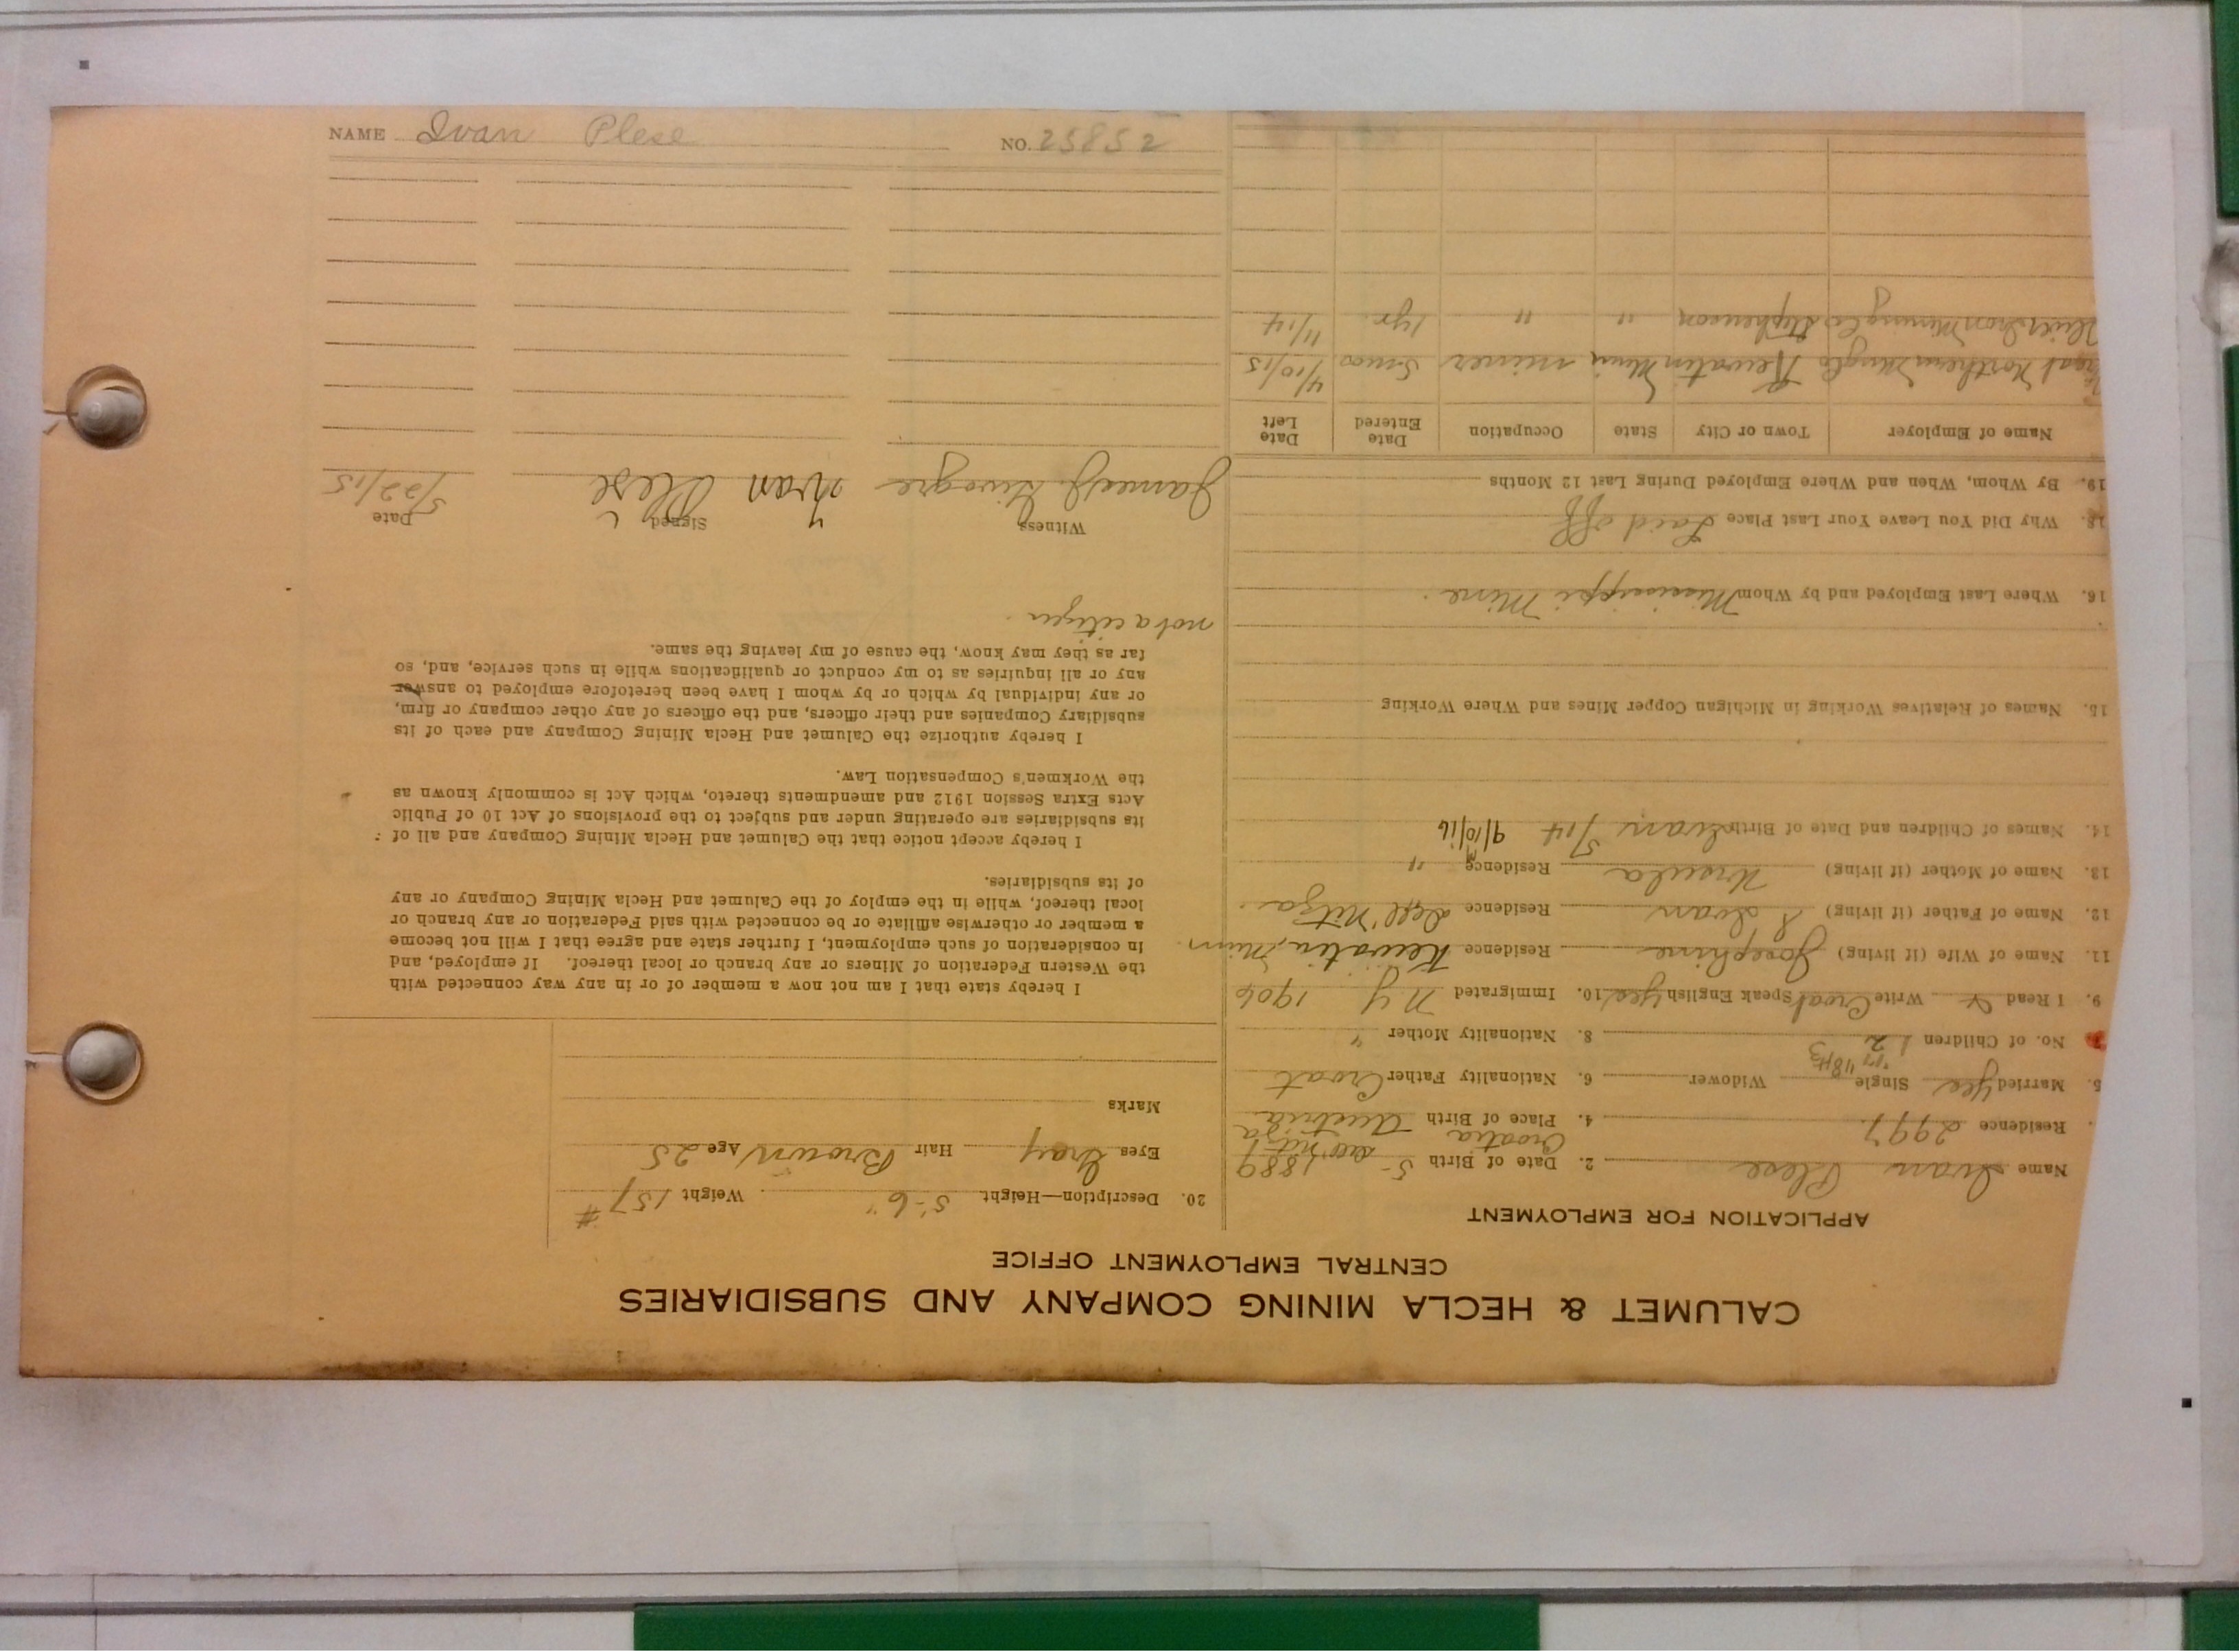 CALUMET & HECLA MINING COMPANY AND SUBSIDIARIES
CENTRAL EMPLOYMENT OFFICE
APPLICATION FOR EMPLOYMENT
Name Ivan Plese 2. Date of Birth 5- 1889
Croatia
Residence 2997. 4. Place of Birth Austria
5. Married Yes Single Widower 6. Nationality Father Croat
No. of Children 1 2 8. Nationality Mother "
9. I Read & Write Croat Speak English Yes 10. Immigrated N Y 1906
11. Name of Wife (if living) Josephine Residence Keewatin, Minn
12. Name of Father (if living) Ivan Residence
13. Name of Mother (if living) Ursula Residence "
14. Names of Children and Date of Birth Ivan 5/14 9/10/16
15. Names of Relatives Working in Michigan Copper Mines and Where Working
16. Where Last Employed and by Whom Mississippi Mine.
18. Why Did You Leave Your Last Place Laid off
19. By Whom, When and Where Employed During Last 12 Months
Name of Employer Town or City State Occupation Date Entered Date Left
Northern Keewatin Minn miner 5 mos 4/10/15
Iron Mining Co Stephenson " " 1 yr. 11/14
20. Description—Height 5'-6" Weight 157 #
Eyes Gray Hair Brown Age 25
Marks
I hereby state that I am not now a member of or in any way connected with
the Western Federation of Miners or any branch or local thereof. If employed, and
in consideration of such employment, I further state and agree that I will not become
a member or otherwise affiliate or be connected with said Federation or any branch or
local thereof, while in the employ of the Calumet and Hecla Mining Company or any
of its subsidiaries.
I hereby accept notice that the Calumet and Hecla Mining Company and all of
its subsidiaries are operating under and subject to the provisions of Act 10 of Public
Acts Extra Session 1912 and amendments thereto, which Act is commonly known as
the Workmen's Compensation Law.
I hereby authorize the Calumet and Hecla Mining Company and each of its
subsidiary Companies and their officers, and the officers of any other company or firm,
or any individual by which or by whom I have been heretofore employed to answer
any or all inquiries as to my conduct or qualifications while in such service, and, so
far as they may know, the cause of my leaving the same.
not a citizen.
Witness Signed Date
James Ivan Plese 5/22/15
NAME Ivan Plese NO. 25852